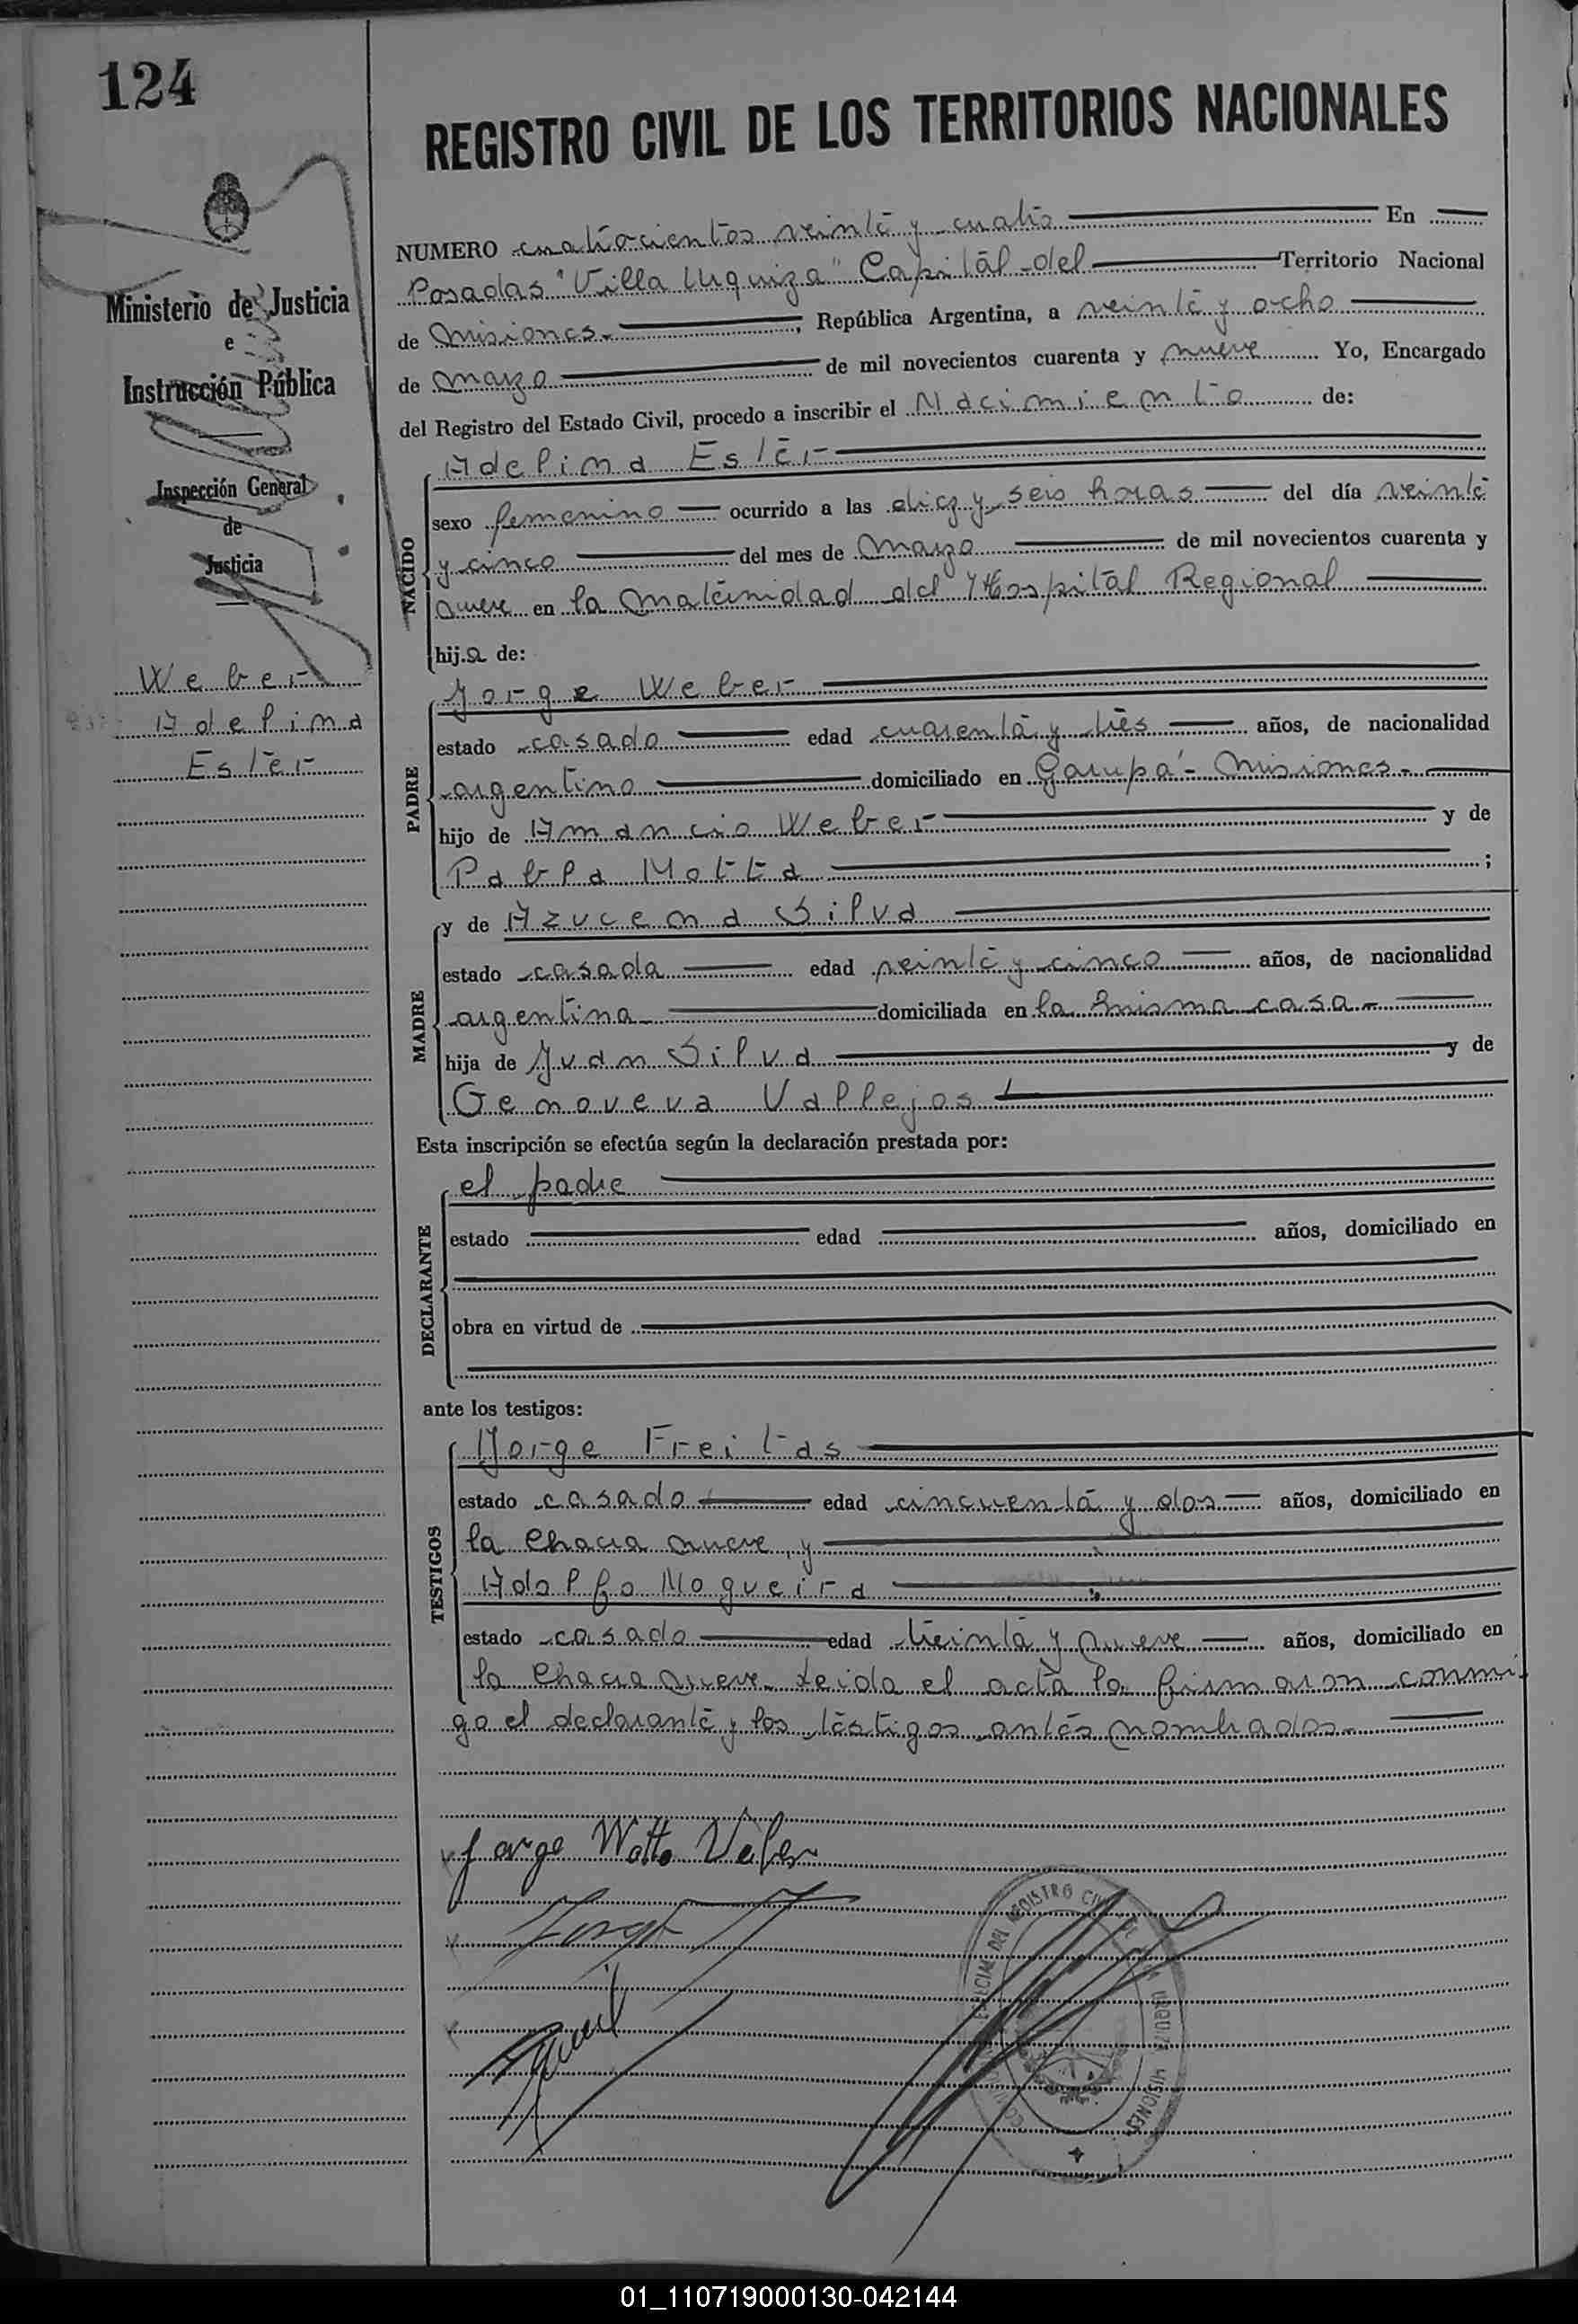 124
REGISTRO CIVIL DE LOS TERRITORIOS NACIONALES
Ministerio de Justicia
e
Instrucción Pública
Inspección General
de
Justicia
Weber
Adelina
Ester
NUMERO cuatrocientos veinte y cuatro En
Posadas "Villa Urquiza" Capital del Territorio Nacional
de Misiones-, República Argentina, a veinte y ocho
de marzo de mil novecientos cuarenta y nueve Yo, Encargado
del Registro del Estado Civil, procedo a inscribir el Nacimiento de:
NACIDO
Adelina Ester
sexo femenino ocurrido a las diez y seis horas del día veinte
y cinco del mes de marzo de mil novecientos cuarenta y
nueve en la maternidad del Hospital Regional
hija de:
PADRE
Jorge Weber
estado casado edad cuarenta y tres años, de nacionalidad
argentino domiciliado en Garupá - Misiones-
hijo de Amancio Weber y de
Pabla Motta ;
MADRE
y de Azucena Silva
estado casada edad veinte y cinco años, de nacionalidad
argentina domiciliada en la misma casa-
hija de Juan Silva y de
Genoveva Vallejos
Esta inscripción se efectúa según la declaración prestada por:
DECLARANTE
el padre
estado edad años, domiciliado en
obra en virtud de
ante los testigos:
TESTIGOS
Jorge Freitas
estado casado edad cincuenta y dos años, domiciliado en
la chacra nueve, y
Adolfo Nogueira
estado casado edad treinta y nueve años, domiciliado en
la chacra nueve. Leida el acta la firmaron conmi-
go el declarante y los testigos antes nombrados-
Jorge Motta Veber
Jorge
REGISTRO CIVIL
URQUIZA MISIONES
01_110719000130-042144